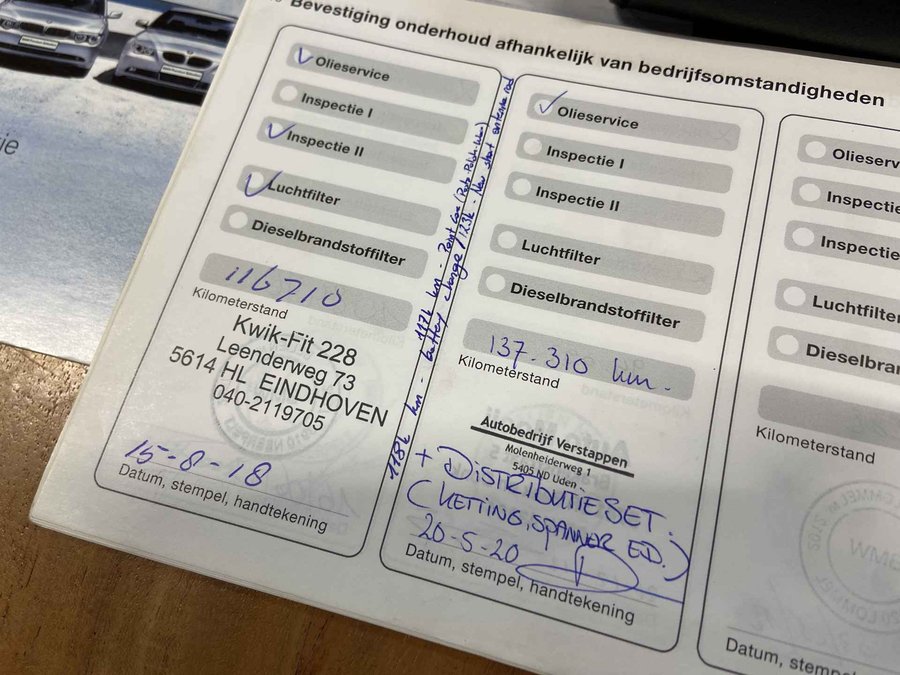 Bevestiging onderhoud afhankelijk van bedrijfsomstandigheden
Olieservice
Inspectie I
Inspectie II
Luchtfilter
Dieselbrandstoffilter
116710
Kilometerstand
Kwik-Fit 228
Leenderweg 73
5614 HL EINDHOVEN
040-2119705
15-8-18
Datum, stempel, handtekening
118k km - battery change / 123k - New short antenna rod
117k km - Paint
Olieservice
Inspectie I
Inspectie II
Luchtfilter
Dieselbrandstoffilter
137.310 km.
Kilometerstand
Autobedrijf Verstappen
Molenheiderweg 1
5405 ND Uden
+ DISTRIBUTIESET
(KETTING, SPANNER ED.)
20-5-20
Datum, stempel, handtekening
Olieserv
Inspectie
Inspectie
Luchtfilter
Dieselbran
Kilometerstand
BMW
Datum, stem
ie